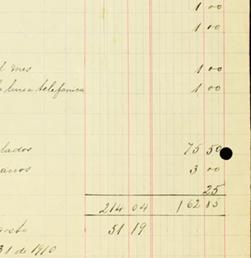 1 00
1 00
mes 1 00
linea telefonica 1 00
75 50
3 00
25
214 04 162 15
31 19
31 de 1910